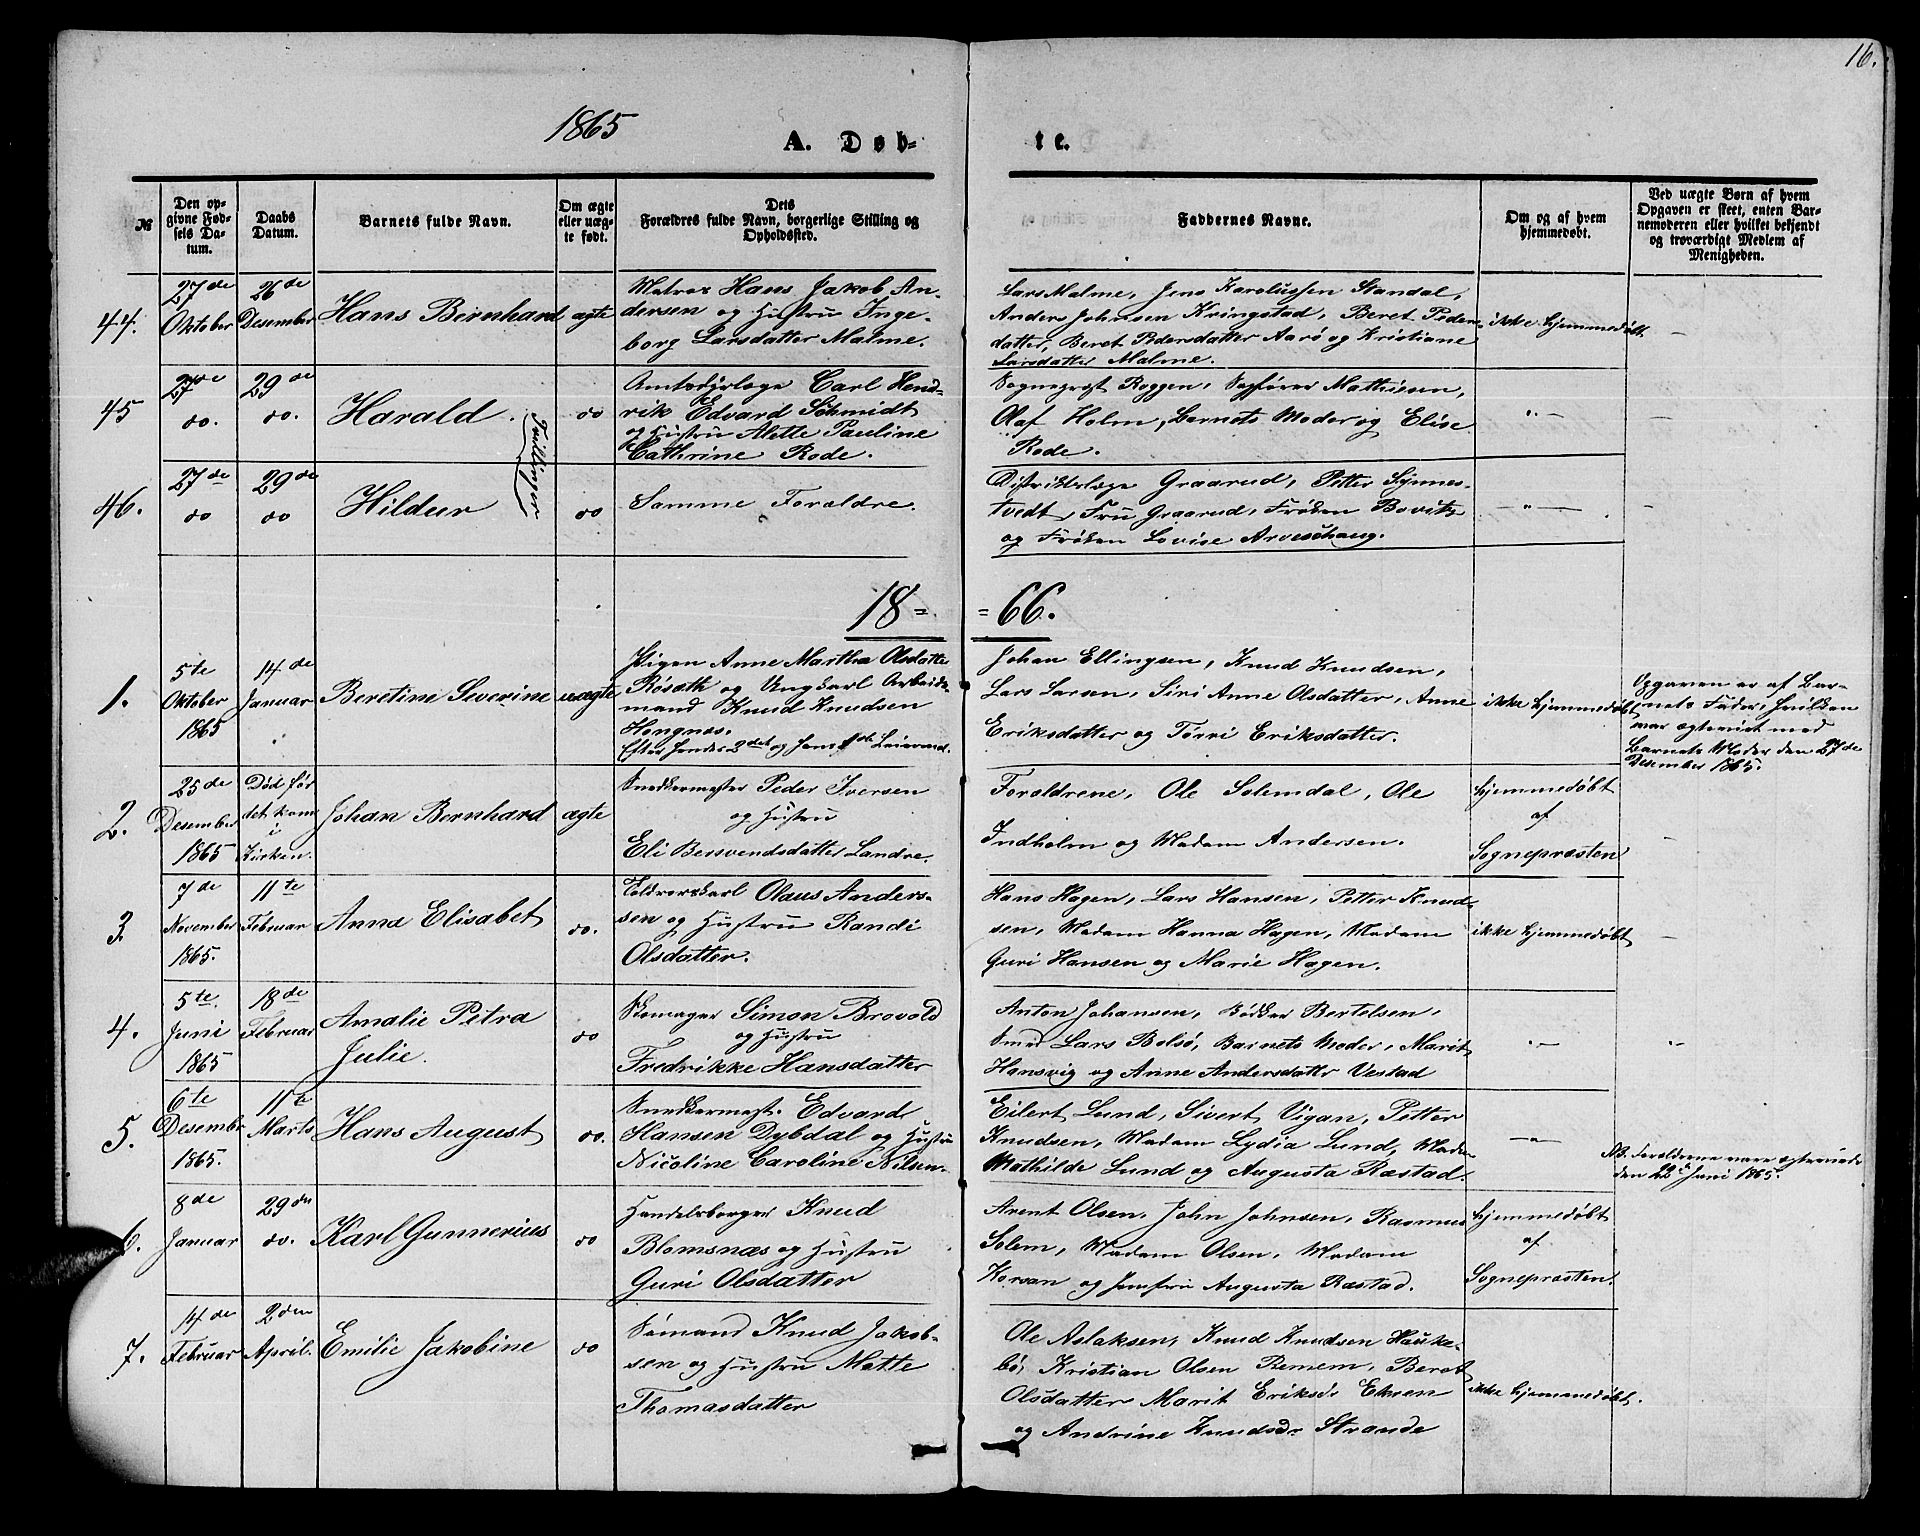 16.
1865
A. Døb-
te.
№
Den op-
givne Fød-
sels Da-
tum.
Daabs
Datum.
Barnets fulde Navn.
Om ægte
eller uæg-
te født.
Dets
Forældres fulde Navn, borgerlige Stilling og
Opholdssted.
Faddernes Navne.
Om og af hvem
hjemmedøbt.
Ved uægte Børn af hvem
Opgaven er skeet, enten Bar-
nemoderen eller hvilket bekjendt
og troværdigt Medlem af
Menigheden.
44.
27de
Oktober
26de
Desember
Hans Bernhard
ægte
Matros Hans Jakob An-
dersen og Hustru Inge-
borg Larsdatter Malme.
Lars Malme, Jens Karolüssen Standal,
Anders Johnsen Kringstad, Beret Peders-
datter, Beret Pedersdatter Aarø og Kristiane
Larsdatter Malme.
ikke hjemmedøbt.
-
45
27de
do.
29de
do.
Harald.
Tvillinger
do
Amtsdyrlæge Carl Hend-
rik Edvard Schmidt
og Hustru Alette Pauline
Cathrine Rode.
Sogneprest Roggen, Sagfører Mathiesen,
Olaf Holm, Barnets Moder og Elise
Rode.
-"-
-
46.
27de
do
29de
do
Hildur
do
Samme Forældre.
Distriktslæge Graarud, Petter Synnes-
tvedt, Fru Graarud, Frøken Bovitz
og Frøken Lovise Arveschaug.
-"-
-
18=
=66.
1.
5te
Oktober
1865
14de
Januar
Beretine Severine
uægte
Pigen Anne Martha Olsdatter
Røsæth og Ungkarl Arbeids-
mand Knud Knudsen
Hongnæs.
Efter hendes 2det og hans 1ste Leiermaal.
Johan Ellingsen, Knud Knudsen,
Lars Larsen, Siri Anne Olsdatter, Anne
Eriksdatter og Førri Eriksdatter.
ikke hjemmedøbt
Opgaven er af Bar-
nets Fader, hvilken
var ægteviet med
Barnets Moder den 27de
Desember 1865.
2.
25de
Desember
1865
Død før
det kom
i
Kirken.
Johan Bernhard
ægte
Snedkermester Peder Iversen
og Hustru
Eli Bersvendsdatter Landre.
Forældrene, Ole Solemdal, Ole
Indholm og Madam Andersen.
hjemmedøbt
af
Sognepræsten
-
3.
7de
November
1865.
11te
Februar
Anna Elisabet
do.
Toldrorskarl Olaus Anders-
sen og Hustru Randi
Olsdatter.
Hans Hagen, Lars Hansen, Petter Knud-
sen, Madam Hanna Hagen, Madam
Guri Hansen og Marie Hagen.
ikke hjemmedøbt
-
4.
5te
Juni
1865
18de
Februar
Amalie Petra
Julie.
do
Skomager Simon Brovold
og Hustru
Fredrikke Hansdatter
Anton Johansen, Bødker Bertelsen,
Smed Lars Bolsø, Barnets Moder, Marit
Hansvig og Anne Andersdatter Vestad
"-
"-
5.
6te
Desembr
1865.
11te
Marts
Hans August
do.
Snedkermest. Edvard
Hansen Dybdal og Hustru
Nicoline Caroline Nilsen.
Eilert Lund, Sivert Vigan, Petter
Knudsen, Madam Lydia Lund, Madm
Mathilde Lund og Augusta Ræstad.
-"-
NB. Forældrene vare ægteviede
den 22de Juni 1865.
6.
8de
Januar
29de
do.
Karl Gunnerius
do
Handelsborger Knud
Blomsnæs og Hustru
Guri Olsdatter
Arent Olsen, John Johnsen, Rasmus
Solem, Madam Olsen, Madam
Korsan og Jomfru Augusta Ræstad.
hjemmedøbt
af
Sognepræsten.
7.
14de
Februar
2den
April.
Emilie Jakobine
do
Sømand Knud Jakob-
sen og Hustru Matte
Thomasdatter
Ole Aslaksen, Knud Knudsen Hauke-
bø, Kristian Olsen Remem, Beret
Olsdatter Marit Eriksdr Ekren
og Andrine Knudsdr Strande
ikke hjemmedøbt.